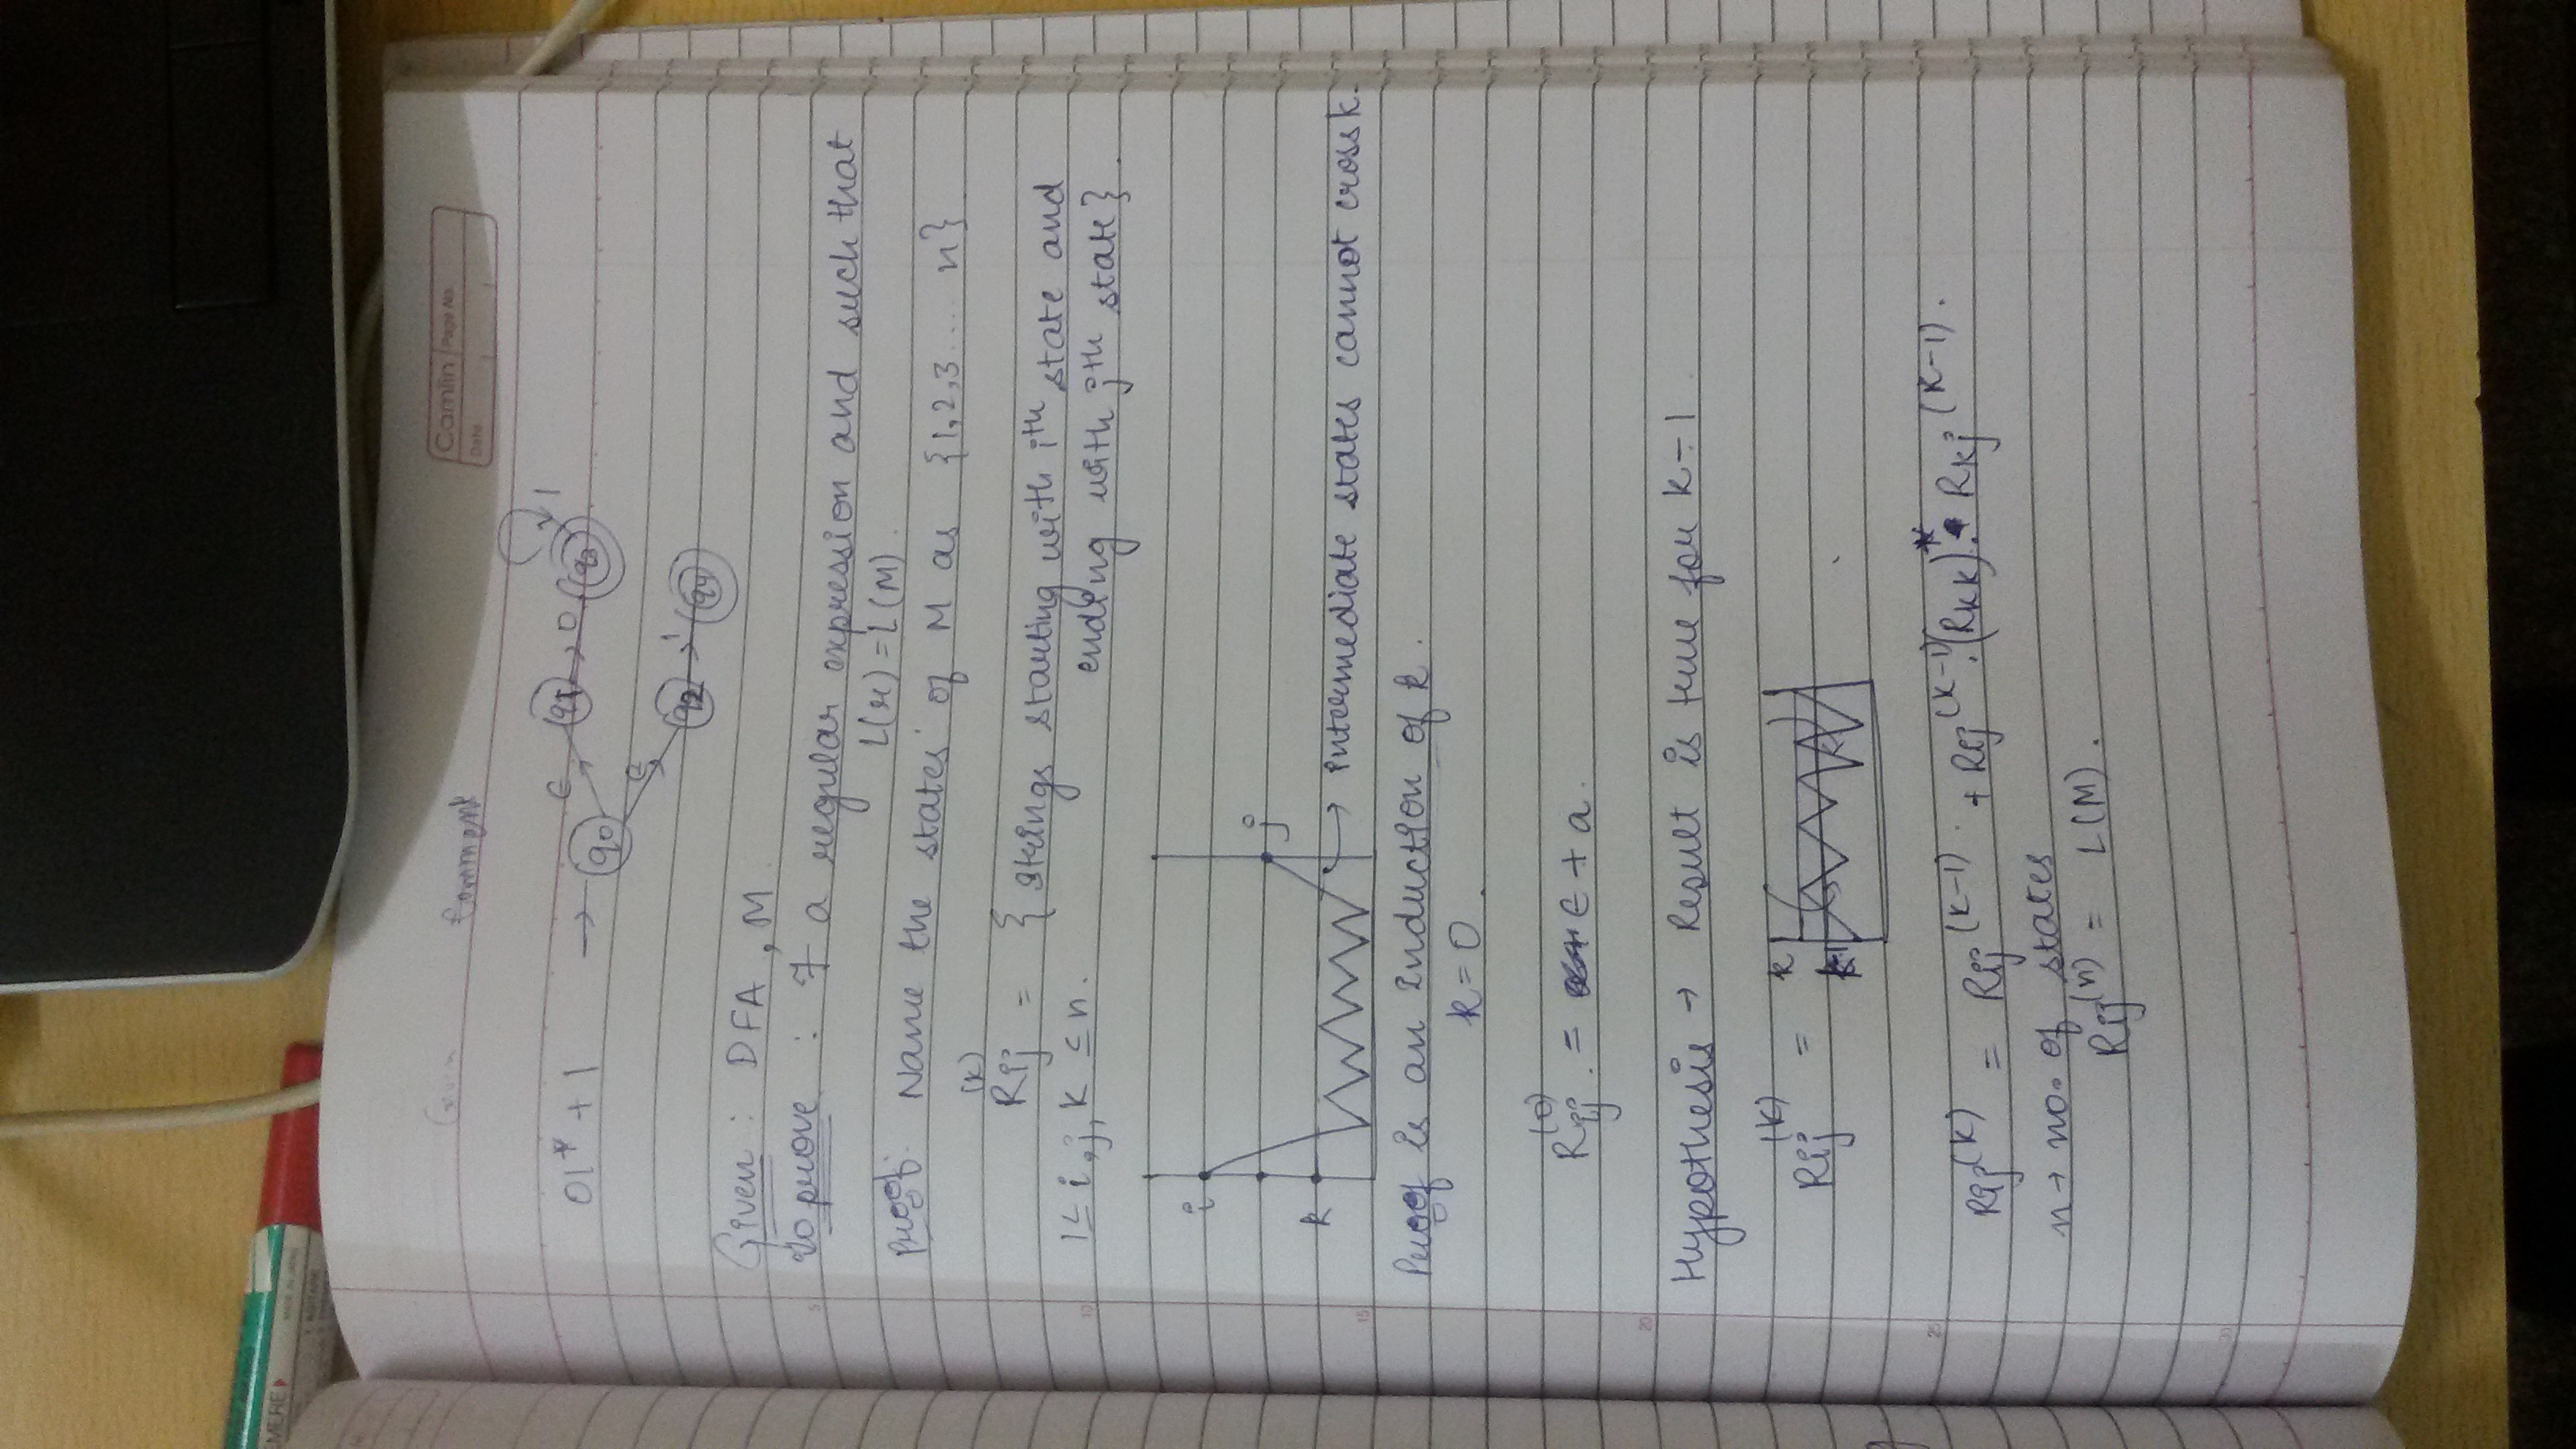 EMERE
MADE IN JAPAN
AGITARE
Given Comment
Camlin Page No.
Date
01* + 1 → q0 ϵ q1 0 q3 1
ϵ q2 1 q4
Given : DFA , M
To prove : ∃ a regular expression and such that
L(r) = L(M).
Proof: Name the states of M as {1,2,3.... n}
Rij^(k) = { strings starting with i^th state and
1 ≤ i, j, k ≤ n. ending with j^th state}.
i
j
k → intermediate states cannot cross k.
Proof is an induction of k.
k = 0.
Rij^(0) = ϵ + a.
Hypothesis → Result is true for k-1
Rij^(k) = k
k-1
Rij^(k) = Rij^(k-1) + Rij^(k-1) . (Rkk)* . Rkj^(k-1).
n → no. of states
Rij^(n) = L(M).
5
10
15
20
25
30